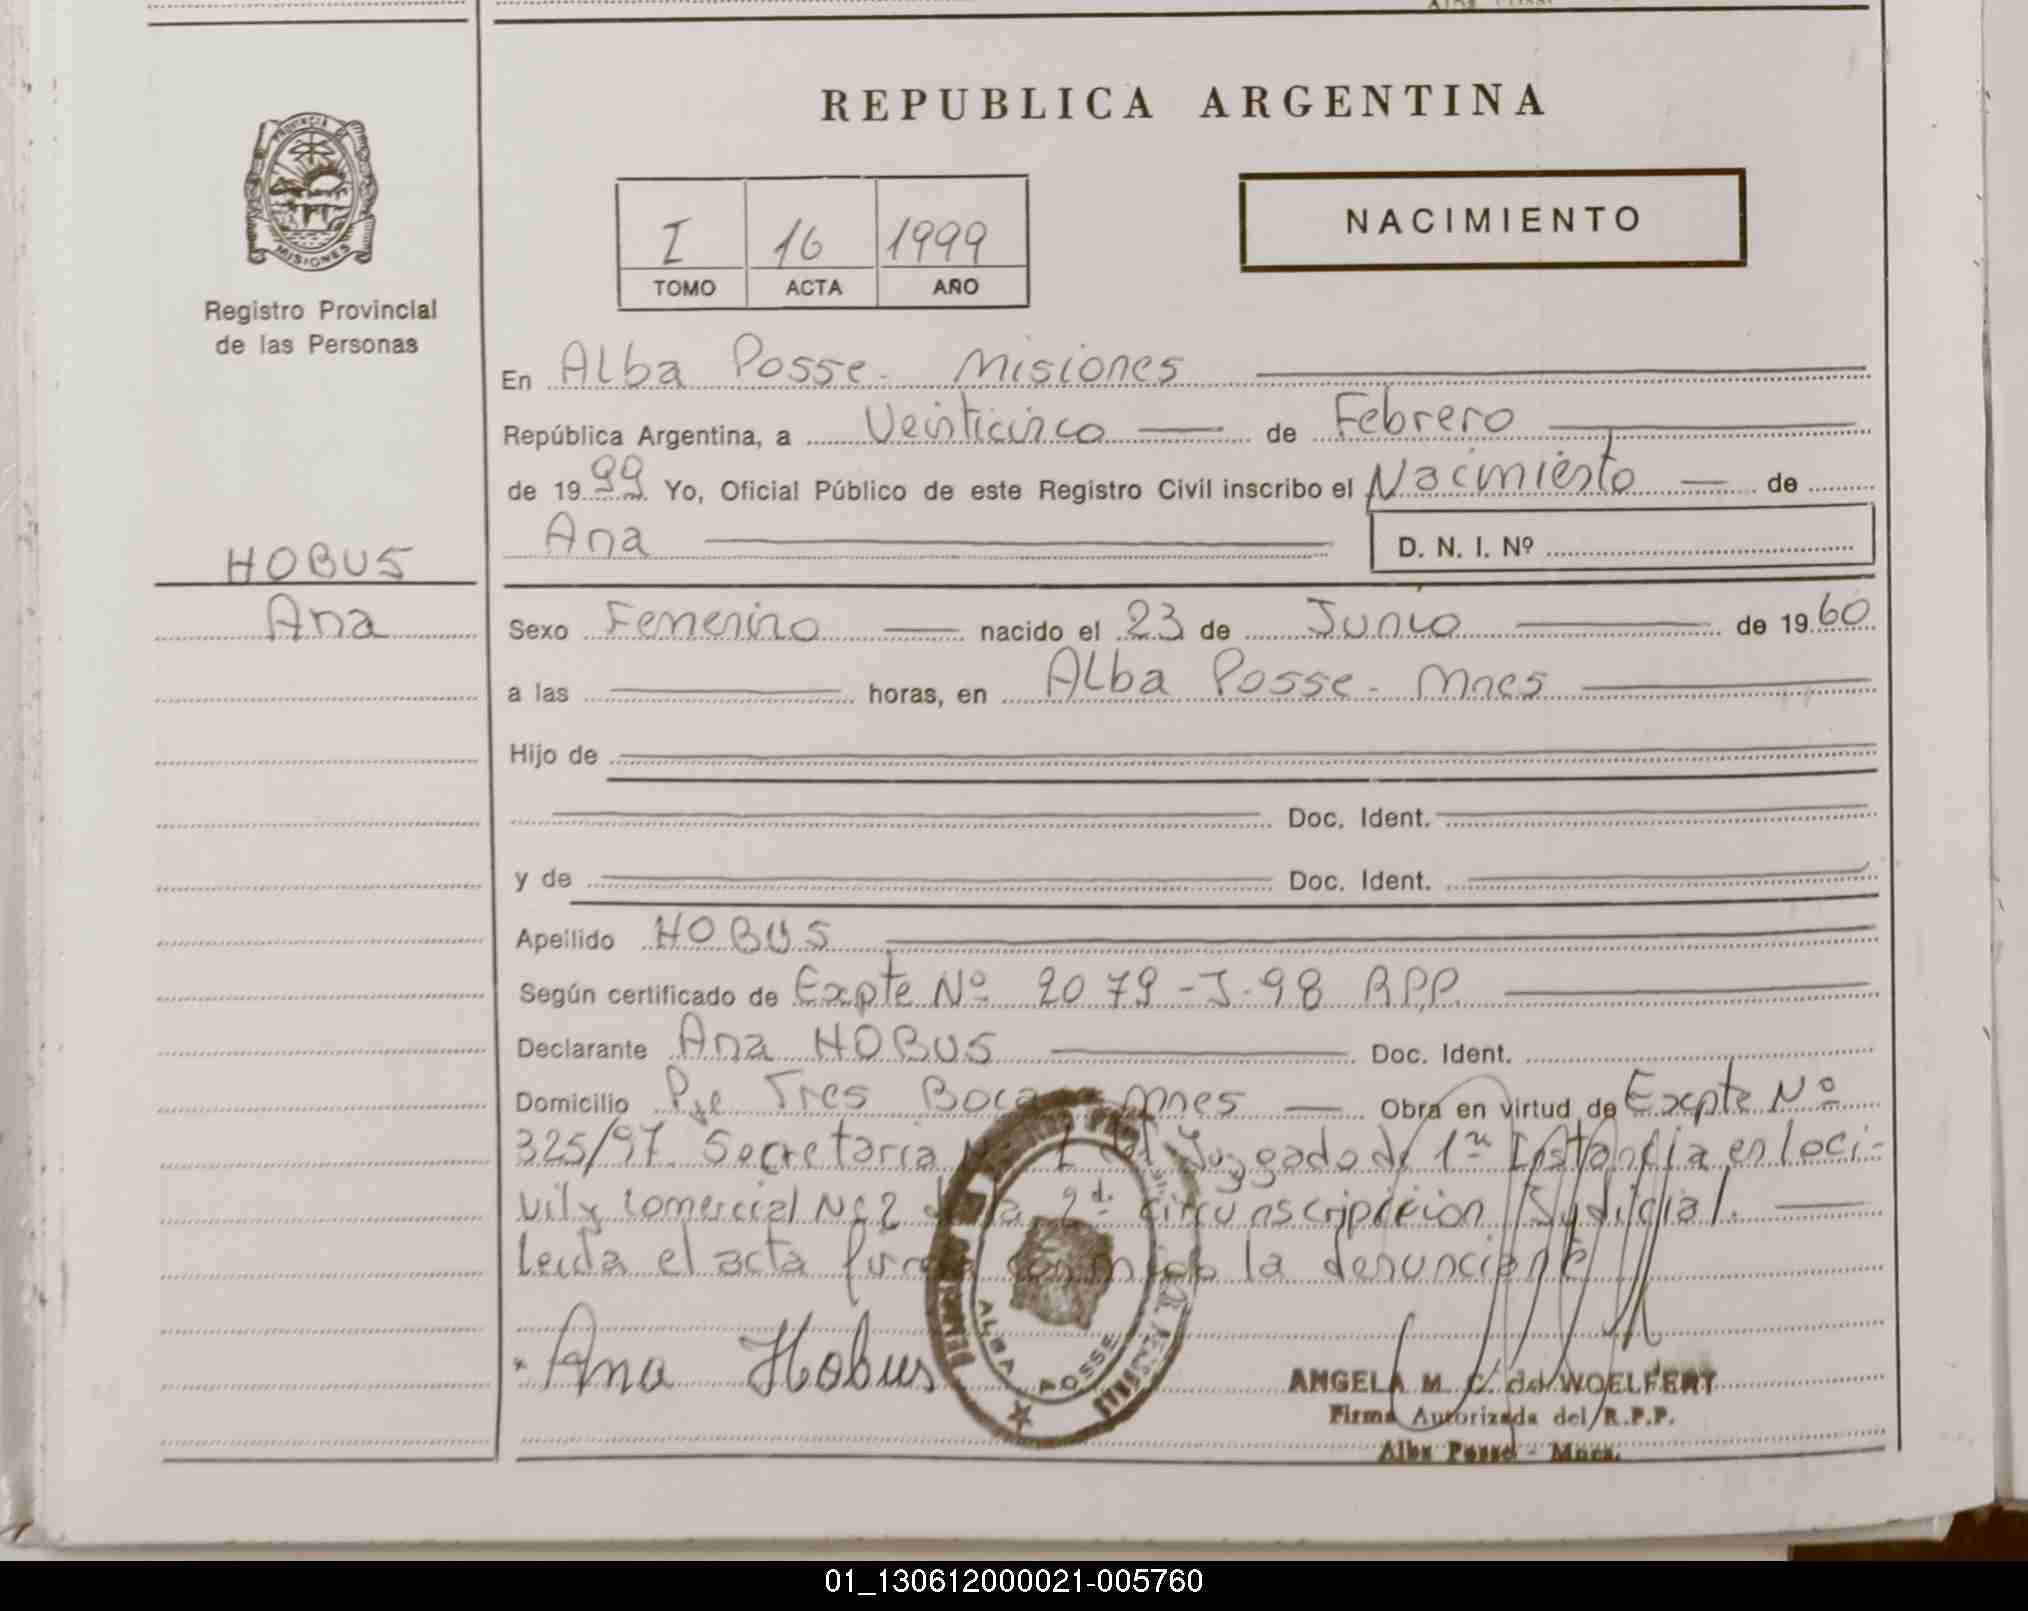 REPUBLICA ARGENTINA
PROVINCIA
MISIONES
Registro Provincial
de las Personas
I 16 1999
TOMO ACTA AÑO
NACIMIENTO
En Alba Posse - Misiones
República Argentina, a Veinticinco de Febrero
de 1999 Yo, Oficial Público de este Registro Civil inscribo el Nacimiento de
Ana D. N. I. Nº
HOBUS
Ana
Sexo Femenino nacido el 23 de Junio de 1960
a las horas, en Alba Posse - Mnes
Hijo de
Doc. Ident.
y de Doc. Ident.
Apellido HOBUS
Según certificado de Expte Nº 2079-J-98 RPP
Declarante Ana HOBUS Doc. Ident.
Domicilio Pje Tres Bocas Mnes Obra en virtud de Expte Nº
325/97 Secretaria 1 del Juzgado de 1ra Instancia en loci-
vil y comercial Nº 2 de la 2da circunscripcion Judicial.
Leida el acta firma conmigo la denunciante
Ana Hobus
ALBA POSSE
ANGELA M. C. de WOELFERT
Firma Autorizada del R.P.P.
Alba Posse - Mnes.
01_130612000021-005760